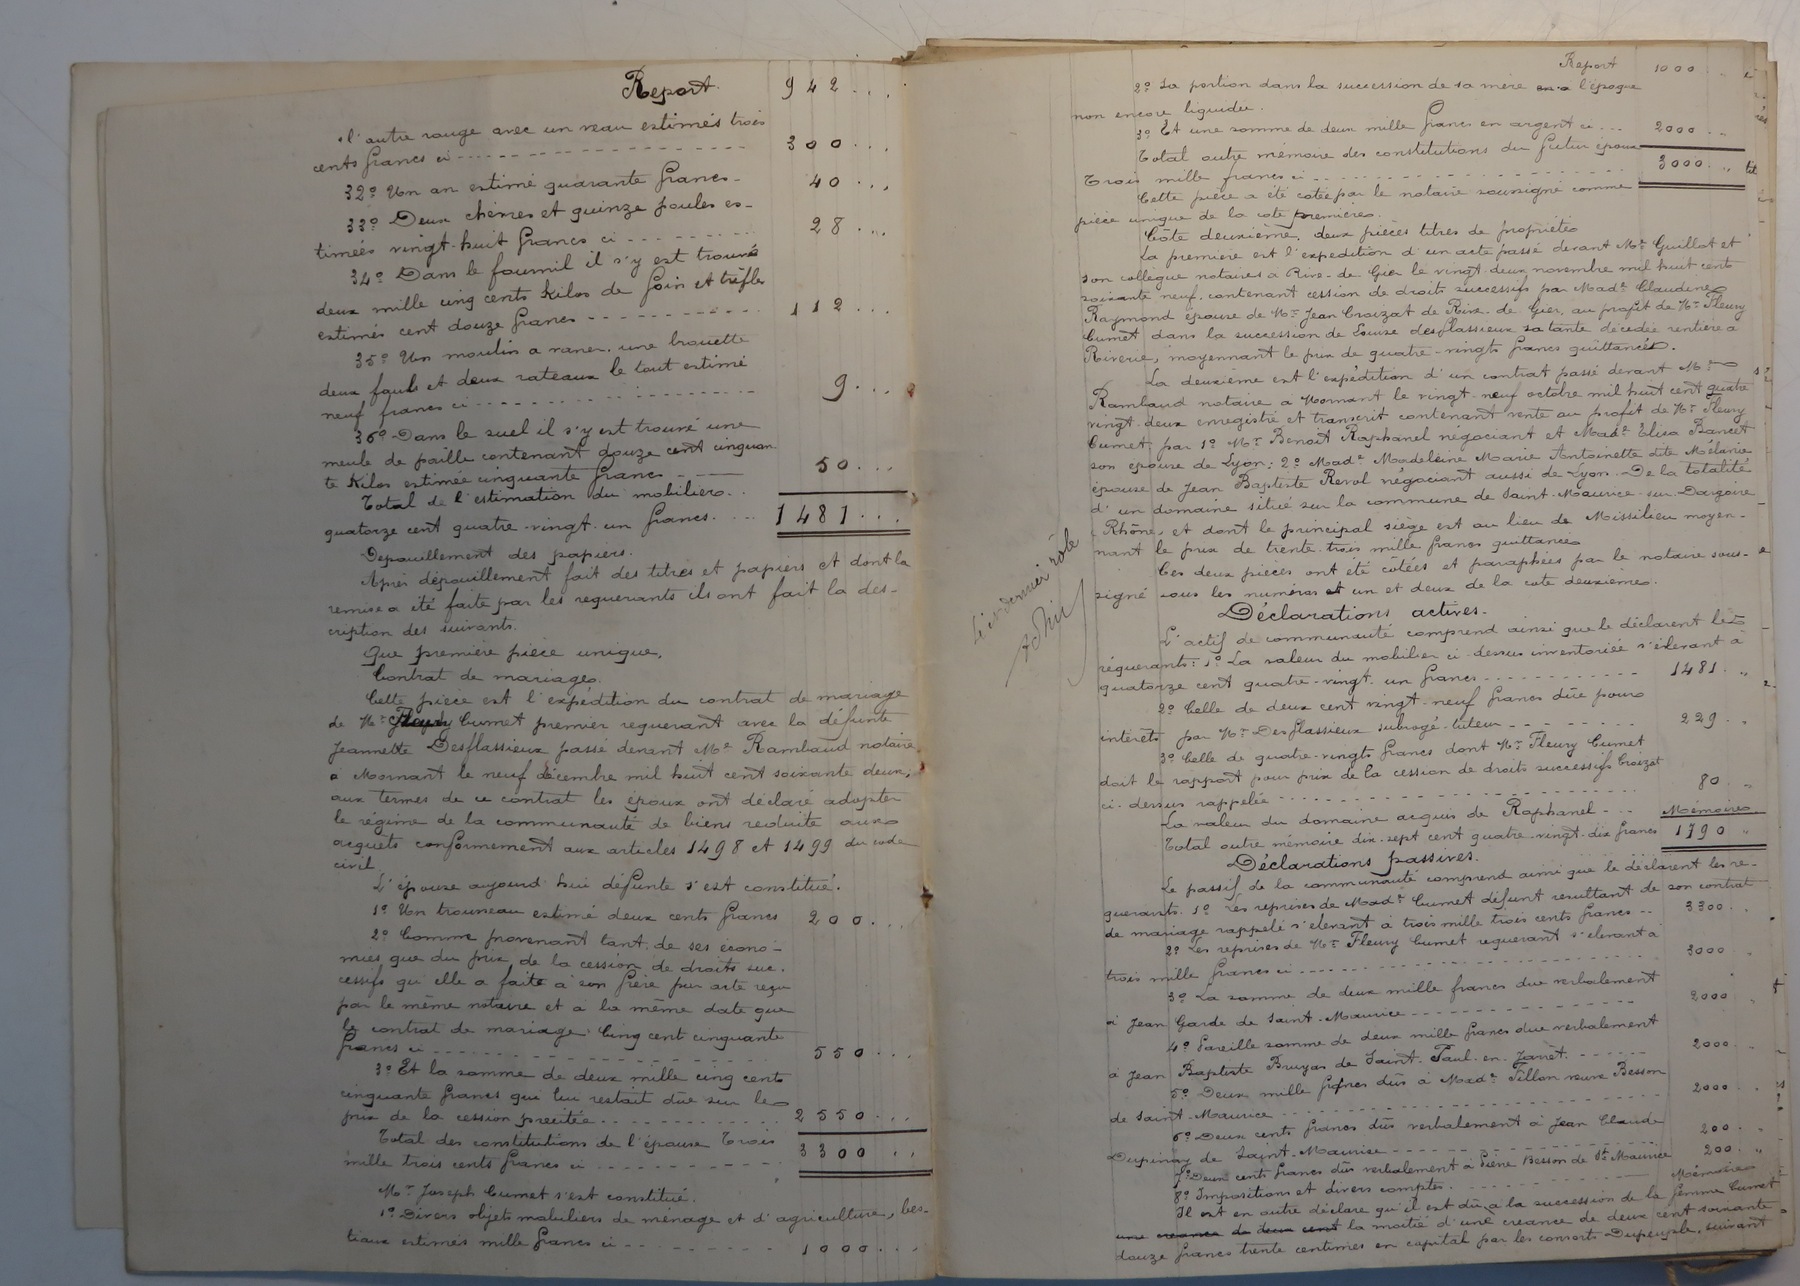 Report. 942 . . .
l'autre rouge avec un veau estimés trois
cents francs ci 300 . . .
32º Un an estimé quarante francs 40 . . .
33º Deux chèvres et quinze poules es-
timées vingt-huit francs ci 28 . . .
34º Dans le fournil il s'y est trouvé
deux mille cinq cents kilos de foin et trèfles
estimés cent douze francs 112 . . .
35º Un moulin a vaner, une brouette
deux faulx et deux rateaux le tout estimé
neuf francs ci 9 . . .
36º Dans le suel il s'y est trouvé une
meule de paille contenant douze cent cinquan
te kilos estimée cinquante francs 50 . . .
Total de l'estimation du mobilier . .
quatorze cent quatre-vingt-un francs. 1481 . . .
Dépouillement des papiers.
Après dépouillement fait des titres et papiers et dont la
remise a été faite par les requérants ils ont fait la des-
cription des suivants.
Que première pièce unique,
Contrat de mariage.
Cette pièce est l'expédition du contrat de mariage
de Mr Fleury Cumet premier requerant avec la défunte
Jeannette Desflassieux passé devant Me Rambaud notaire
à Mornant le neuf décembre mil huit cent soixante deux,
aux termes de ce contrat les époux ont déclaré adopter
le régime de la communauté de biens reduite aux
acquêts conformement aux articles 1498 et 1499 du code
civil.
L'épouse aujourd'hui défunte s'est constitué.
1º Un trouneau estimé deux cents francs 200 . . .
2º Comme provenant tant de ses écono-
mies que du prix de la cession de droits suc.
cessifs qu'elle a faite à son frère par acte reçu
par le même notaire et à la même date que
le contrat de mariage Cinq cent cinquante
francs ci 550 . . .
3º Et la somme de deux mille cinq cent
cinquante francs qui lui restait dûe sur le
prix de la cession précitée 2550 . . .
Total des constitutions de l'épouse Trois
mille trois cents francs ci 3300 . .
Mr Joseph Cumet s'est constitué.
1º Divers objets mobiliers de ménage et d'agriculture, bes-
tiaux estimés mille francs ci 1000 . . .
Report 1000
2º Sa portion dans la succession de sa mère à l'époque
non encore liquidée.
3º Et une somme de deux mille francs en argent ci . . . 2000 . .
Total outre mémoire des constitutions du futur époux
Trois mille francs ci 3000 . .
Cette pièce a été cotée par le notaire soussigné comme
pièce unique de la cote première.
Côte deuxième, deux pièces titres de propriété
La première est l'expédition d'un acte passé devant Me Guillot et
son collègue notaires à Rive-de Gier le vingt deux novembre mil huit cent
soixante neuf, contenant cession de droits successifs par Made Claudine
Raymond épouse de Mr Jean Croizat de Rive-de Gier, au profit de Mr Fleury
Cumet dans la succession de Louise desflassieux sa tante décédée rentière à
Riverie, moyennant le prix de quatre-vingts francs quittancés.
La deuxième est l'expédition d'un contrat passé devant Me
Rambaud notaire à Mornant le vingt-neuf octobre mil huit cent quatre
vingt-deux enregistré et transcrit contenant vente au profit de Mr Fleury
Cumet par 1º Mr Benoît Raphanel négociant et Made Elisa Bancet
son épouse de Lyon; 2º Made Madeleine Marie Antoinette dite Mélanie
épouse de Jean Baptiste Revol négociant aussi de Lyon. De la totalité
d'un domaine situé sur la commune de Saint-Maurice-sur-Dargoire
Rhône, et dont le principal siège est au lieu de Missilieu moyen-
nant le prix de trente-trois mille francs quittancés
Ces deux pièces ont été côtées et paraphées par le notaire sous-
signé sous les numéros et un et deux de la cote deuxième.
Le et dernier rôle
Déclarations actives.
L'actif de communauté comprend ainsi que le déclarent les
réquerants: 1º La valeur du mobilier ci-dessus inventoriée s'élevant à
quatorze cent quatre-vingt-un francs 1481 . .
2º Celle de deux cent vingt-neuf francs dûe pour
intérêts par Mr Desflassieux subrogé-tuteur 229 . .
3º Celle de quatre-vingts francs dont Mr Fleury Cumet
doit le rapport pour prix de la cession de droits successifs Croizat
ci-dessus rappelée 80 . .
La valeur du domaine acquis de Raphanel . . . Mémoires
Total outre mémoire dix-sept cent quatre-vingt-dix francs 1790
Déclarations passives.
Le passif de la communauté comprend ainsi que le déclarent les re-
querants. 1º Les reprises de Made Cumet défunt resultant de son contrat
de mariage rappelé s'elevant à trois mille trois cents francs 3300 .
2º Les reprises de Mr Fleury Cumet requerant s'elevant à
trois mille francs ci 3000
3º La somme de deux mille francs due verbalement
à Jean Garde de Saint-Maurice 2000 .
4º Pareille somme de deux mille francs due verbalement
à Jean Baptiste Bruyas de Saint-Paul-en-Jarret 2000
5º Deux mille francs dûs à Made Tillon veuve Besson
de Saint-Maurice 2000
6º Deux cents francs dûs verbalement à Jean Claude
Dupinay de Saint-Maurice 200 .
7º Deux cents francs dûs verbalement à Pierre Besson de St Maurice 200 . .
8º Impositions et divers comptes. Mémoires
Il est en outre déclaré qu'il est dû à la succession de la femme Cumet
une creance de deux cent la moitié d'une creance de deux cent soixante
douze francs trente centimes en capital par les consorts Dupeuple, suivant